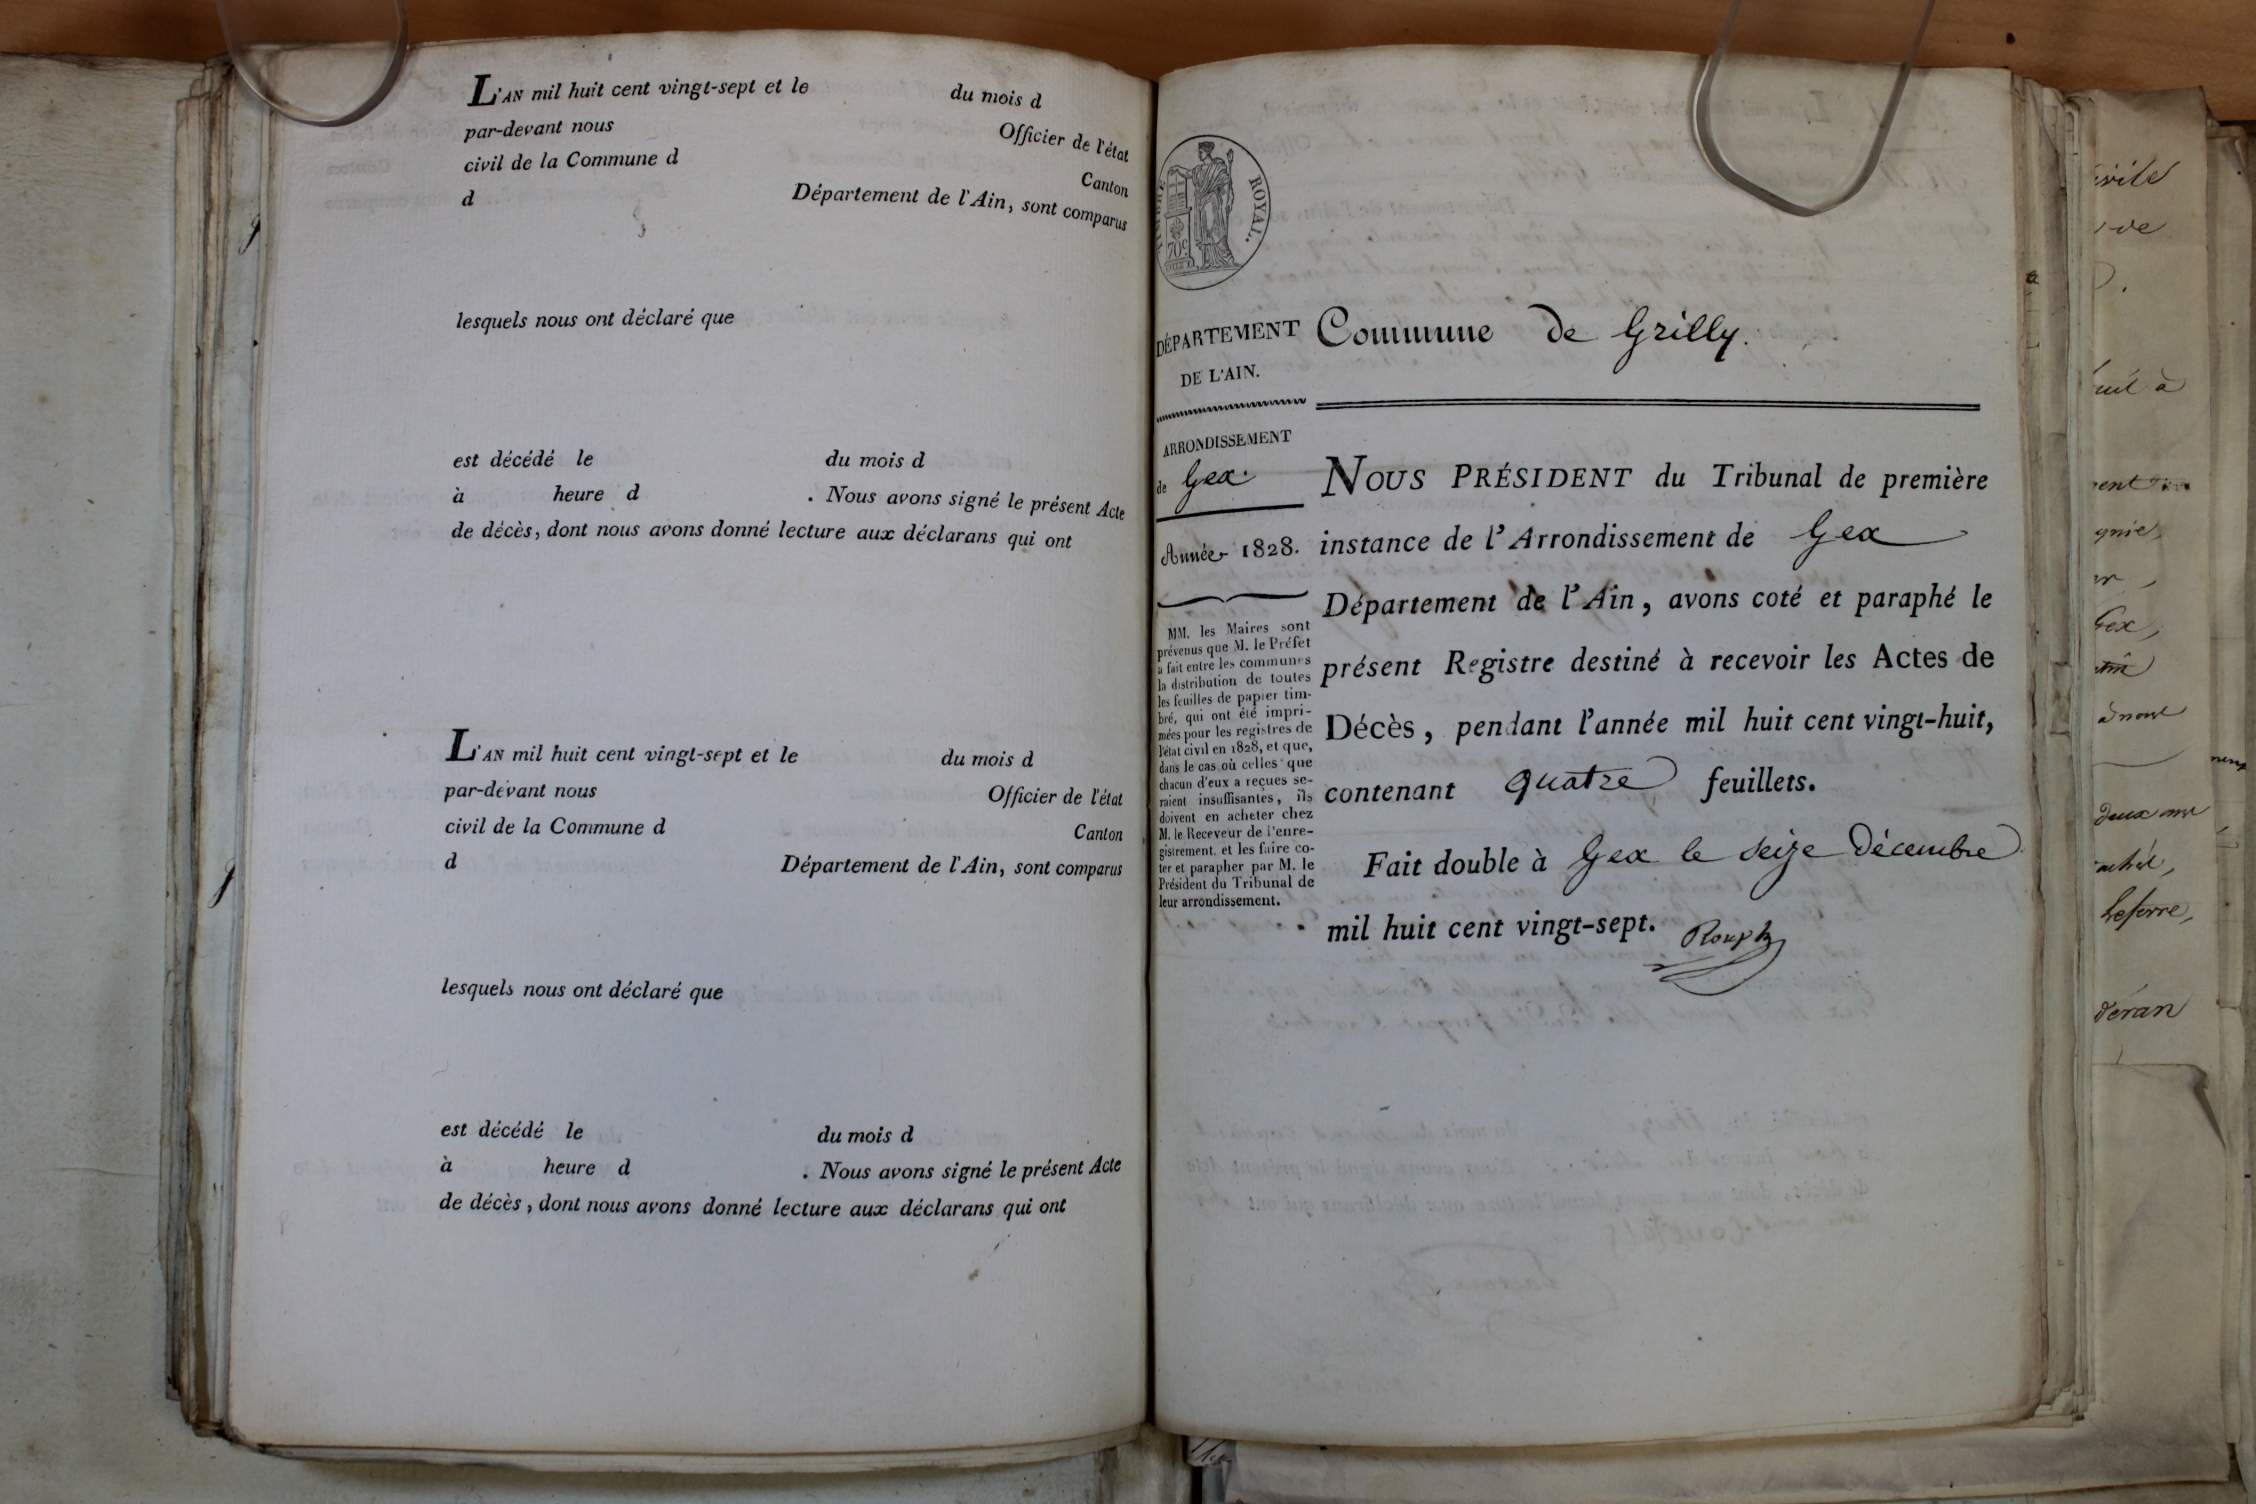 L'AN mil huit cent vingt-sept et le du mois d
par-devant nous Officier de l'état
civil de la Commune d Canton
d Département de l'Ain, sont comparus
lesquels nous ont déclaré que
est décédé le du mois d
à heure d . Nous avons signé le présent Acte
de décès, dont nous avons donné lecture aux déclarans qui ont
L'AN mil huit cent vingt-sept et le du mois d
par-devant nous Officier de l'état
civil de la Commune d Canton
d Département de l'Ain, sont comparus
lesquels nous ont déclaré que
est décédé le du mois d
à heure d . Nous avons signé le présent Acte
de décès, dont nous avons donné lecture aux déclarans qui ont
TIMBRE ROYAL.
70c
DÉPARTEMENT
DE L'AIN.
ARRONDISSEMENT
de Gex.
Année 1828.
MM. les Maires sont
prévenus que M. le Préfet
a fait entre les communes
la distribution de toutes
les feuilles de papier tim-
bré, qui ont été impri-
mées pour les registres de
l'état civil en 1828, et que,
dans le cas où celles que
chacun d'eux a reçues se-
raient insuffisantes, ils
doivent en acheter chez
M. le Receveur de l'enre-
gistrement, et les faire co-
ter et parapher par M. le
Président du Tribunal de
leur arrondissement.
Commune de Grilly.
NOUS PRÉSIDENT du Tribunal de première
instance de l'Arrondissement de Gex
Département de l'Ain, avons coté et paraphé le
présent Registre destiné à recevoir les Actes de
Décès, pendant l'année mil huit cent vingt-huit,
contenant quatre feuillets.
Fait double à Gex le seize Décembre
mil huit cent vingt-sept.
Rouph